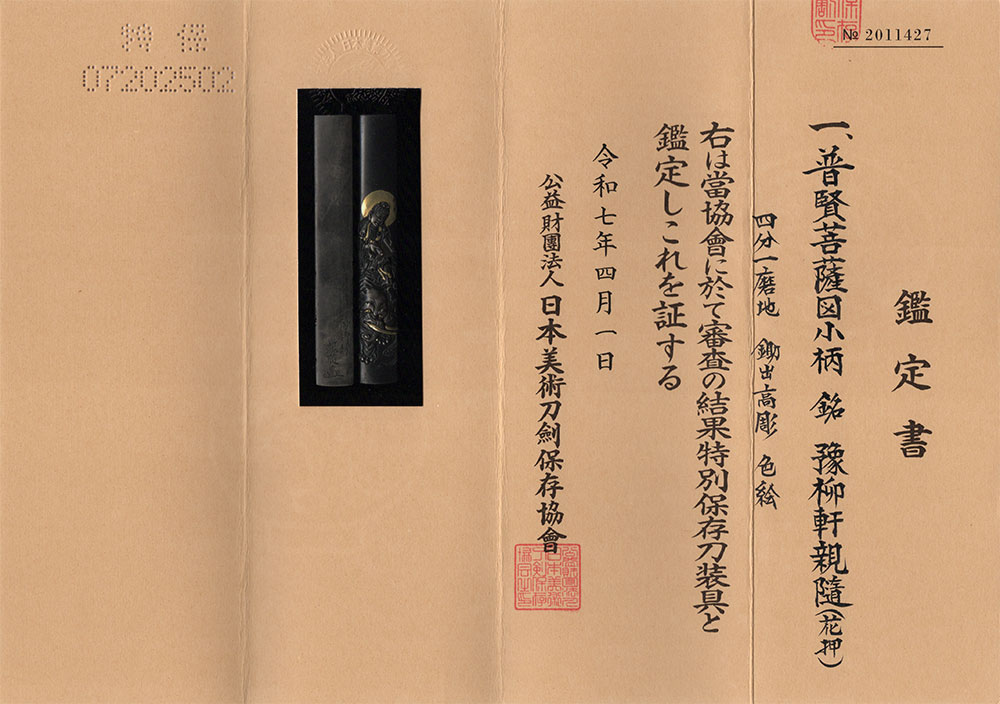 № 2011427
鑑定書
一、普賢菩薩図小柄 銘 豫柳軒親随(花押)
四分一磨地 鋤出高彫 色絵
右は當協會に於て審査の結果特別保存刀装具と
鑑定しこれを証する
令和七年四月一日
公益財團法人 日本美術刀劍保存協會
特保
07202502